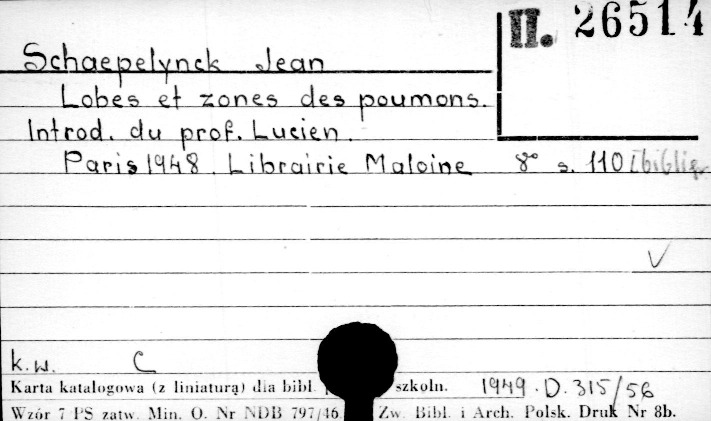 II. 26514
Schaepelynck Jean
Lobes et zones des poumons.
Introd. du prof. Lucien.
Paris 1948. Librairie Maloine 8° s. 110
k.w. C
Karta katalogowa (z liniaturą) dla bibl. szkoln. 1949.D.315/56
Wzór 7 PS zatw. Min. O. Nr NDB 797/46. Zw. Bibl. i Arch. Polsk. Druk Nr 8b.